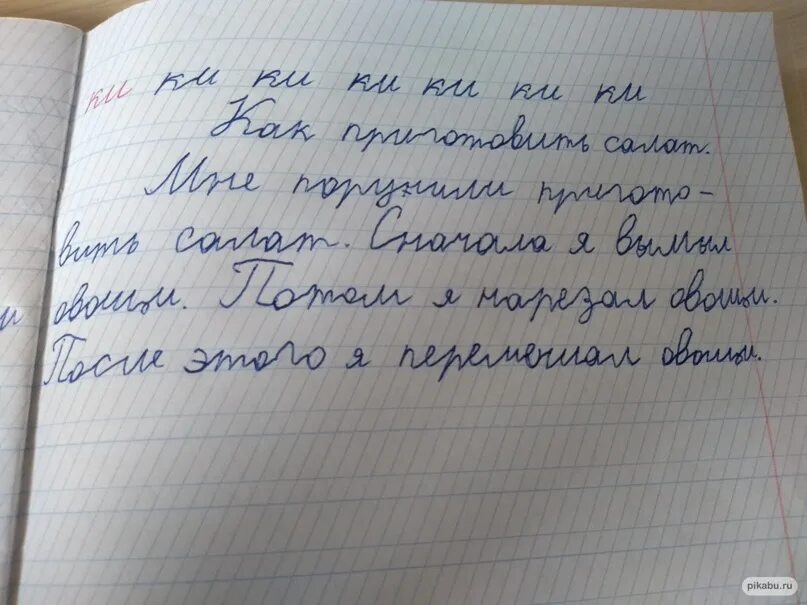 ки ки ки ки ки ки ки
Как приготовить салат.
Мне поручили пригото-
вить салат. Сначала я вымыл
овощи. Потом я нарезал овощи.
и
После этого я перемешал овощи.
pikabu.ru